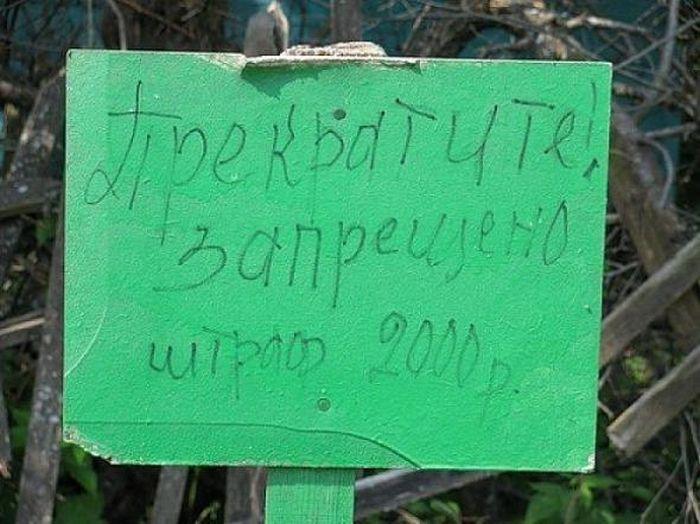 Прекратите!
запрещено
штраф 2000 р.